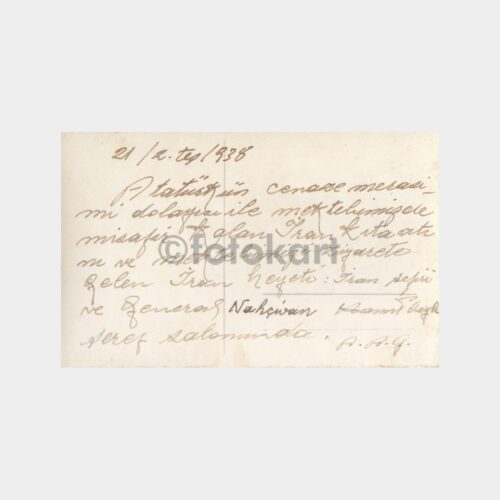 21/2.teş/938
Atatürkün cenaze merasi-
mi dolayısile mektebimizde
misafir kalan İran kıtaatı
nı ve ziyarete
gelen İran heyeti: İran sefiri
ve General Nahçivan
şeref salonunda.
A.A.G.
©fotokart